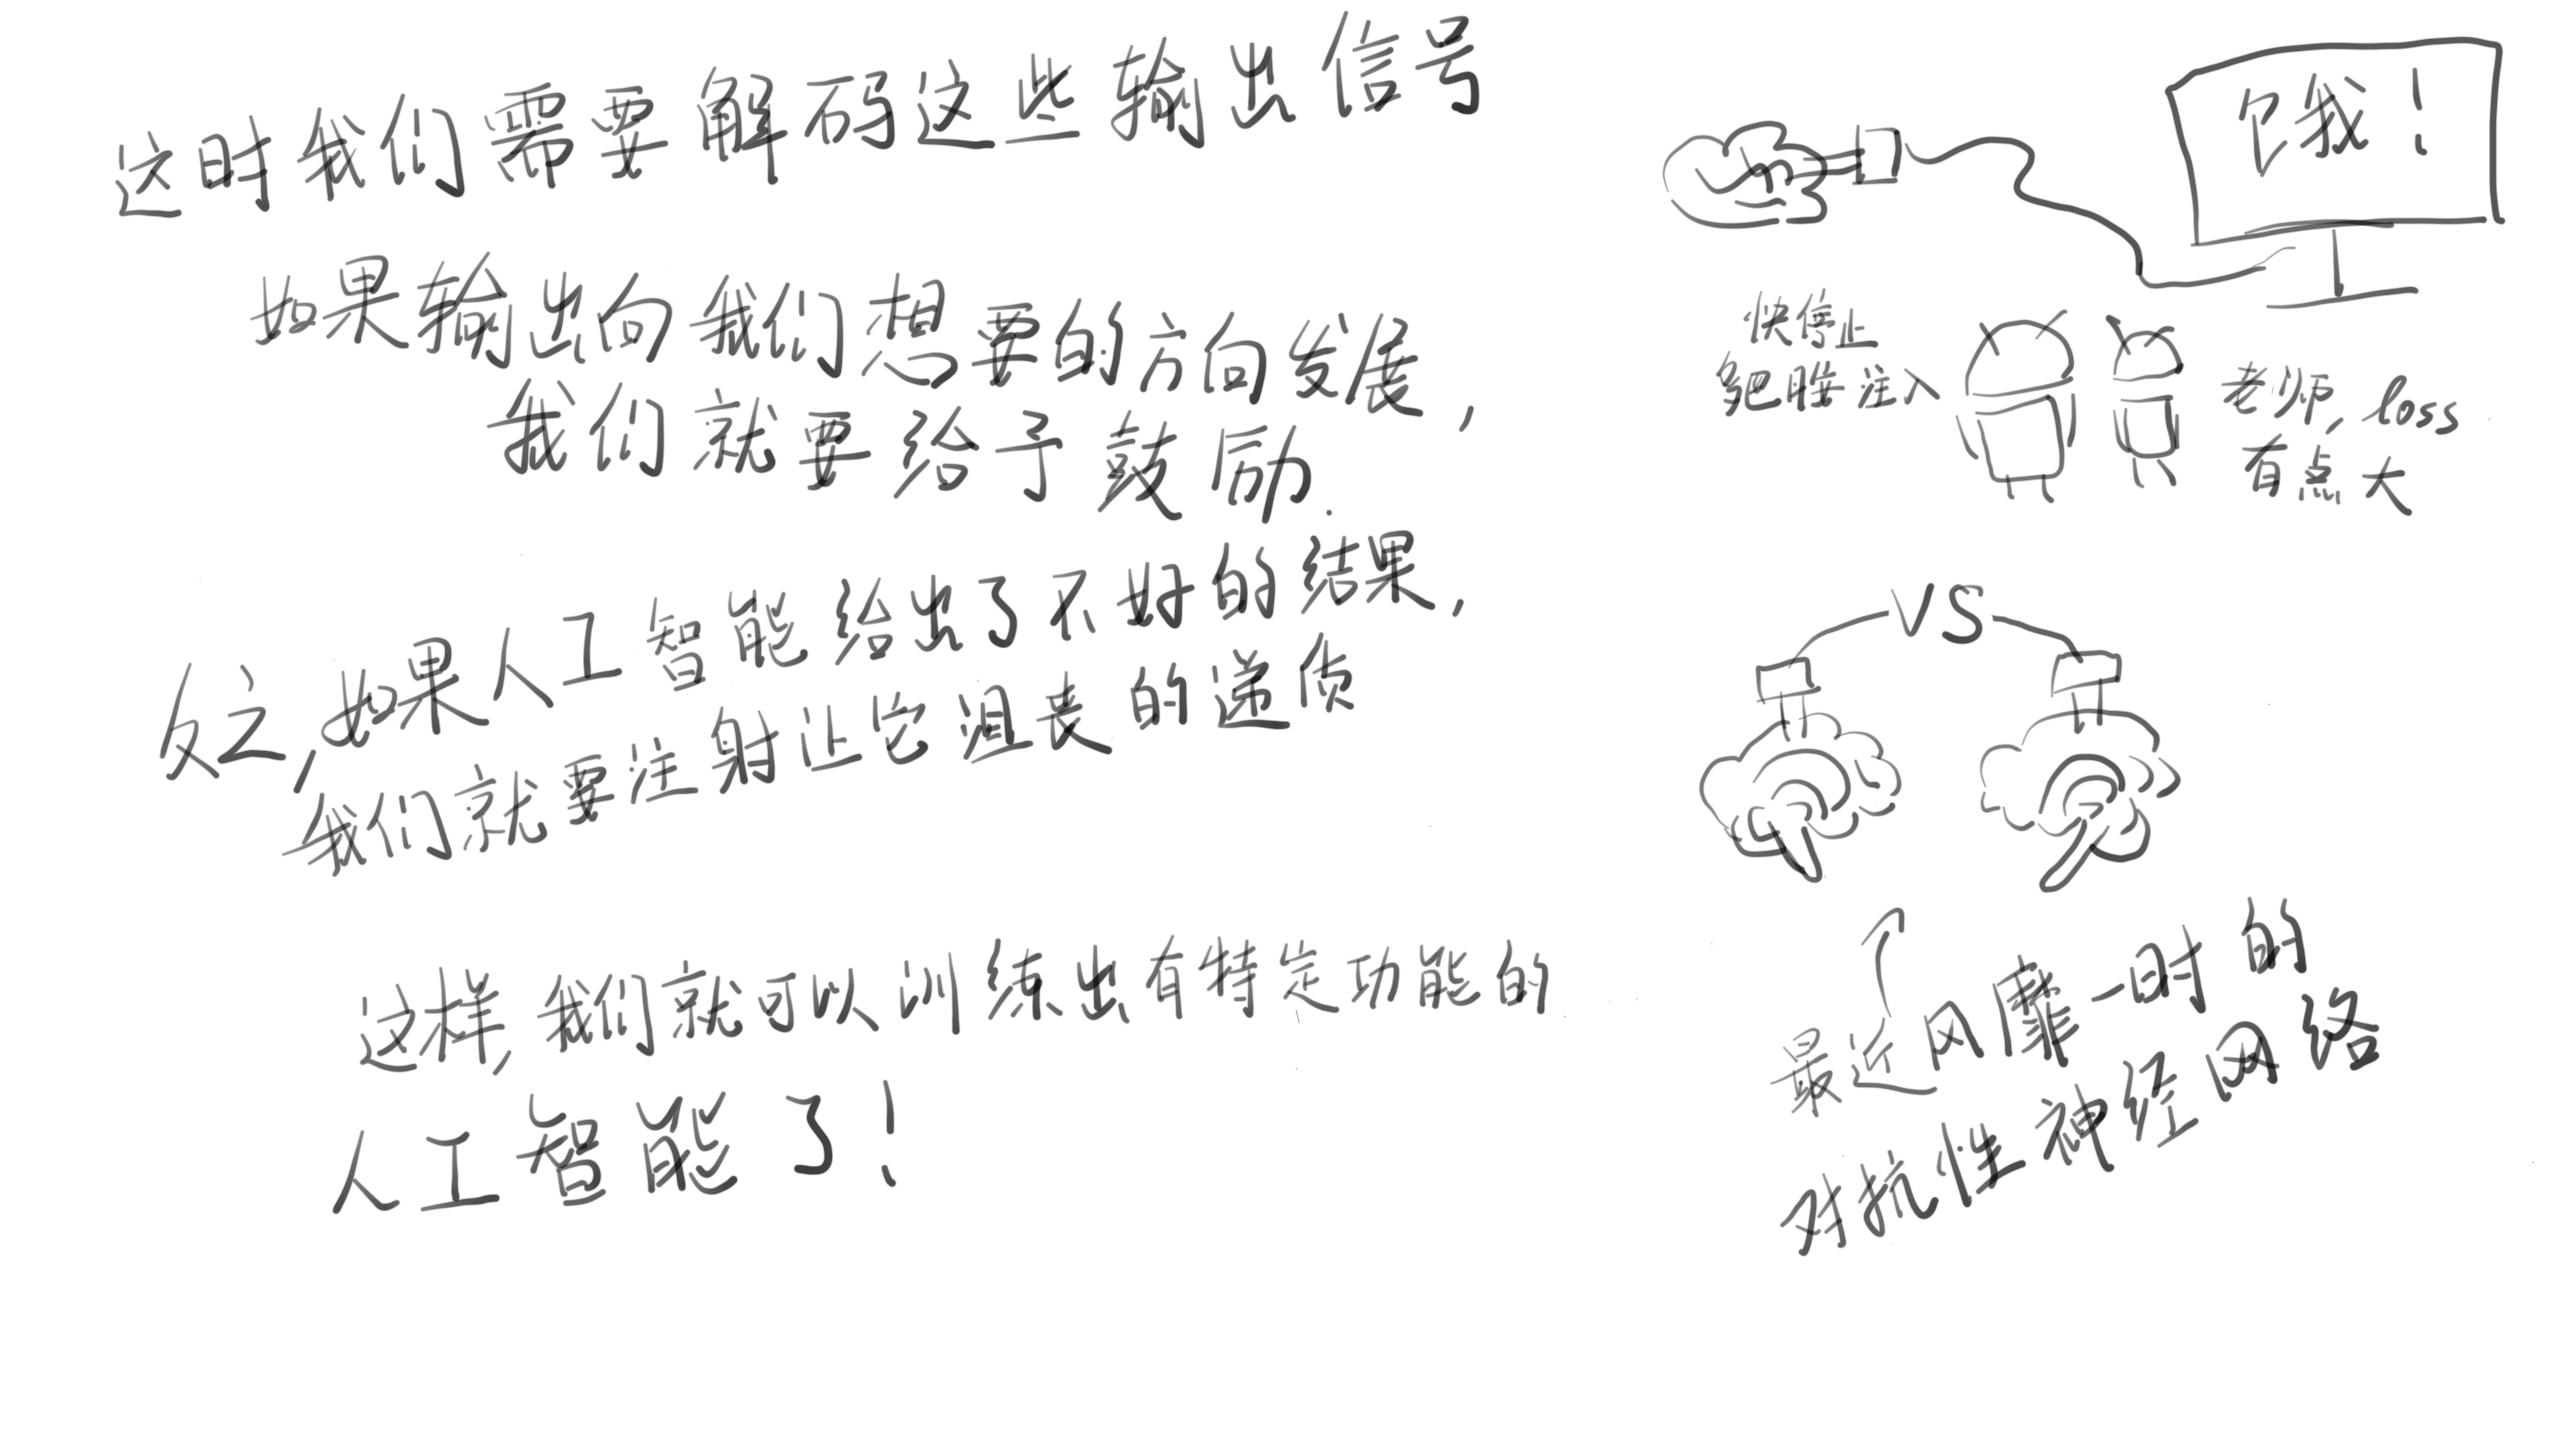 这时我们需要解码这些输出信号
如果输出向我们想要的方向发展,
我们就要给予鼓励.
反之,如果人工智能给出了不好的结果,
我们就要注射让它沮丧的递质
这样,我们就可以训练出有特定功能的
人工智能了!
饿!
快停止
多巴胺注入
老师, loss
有点大
VS
最近风靡一时的
对抗性神经网络